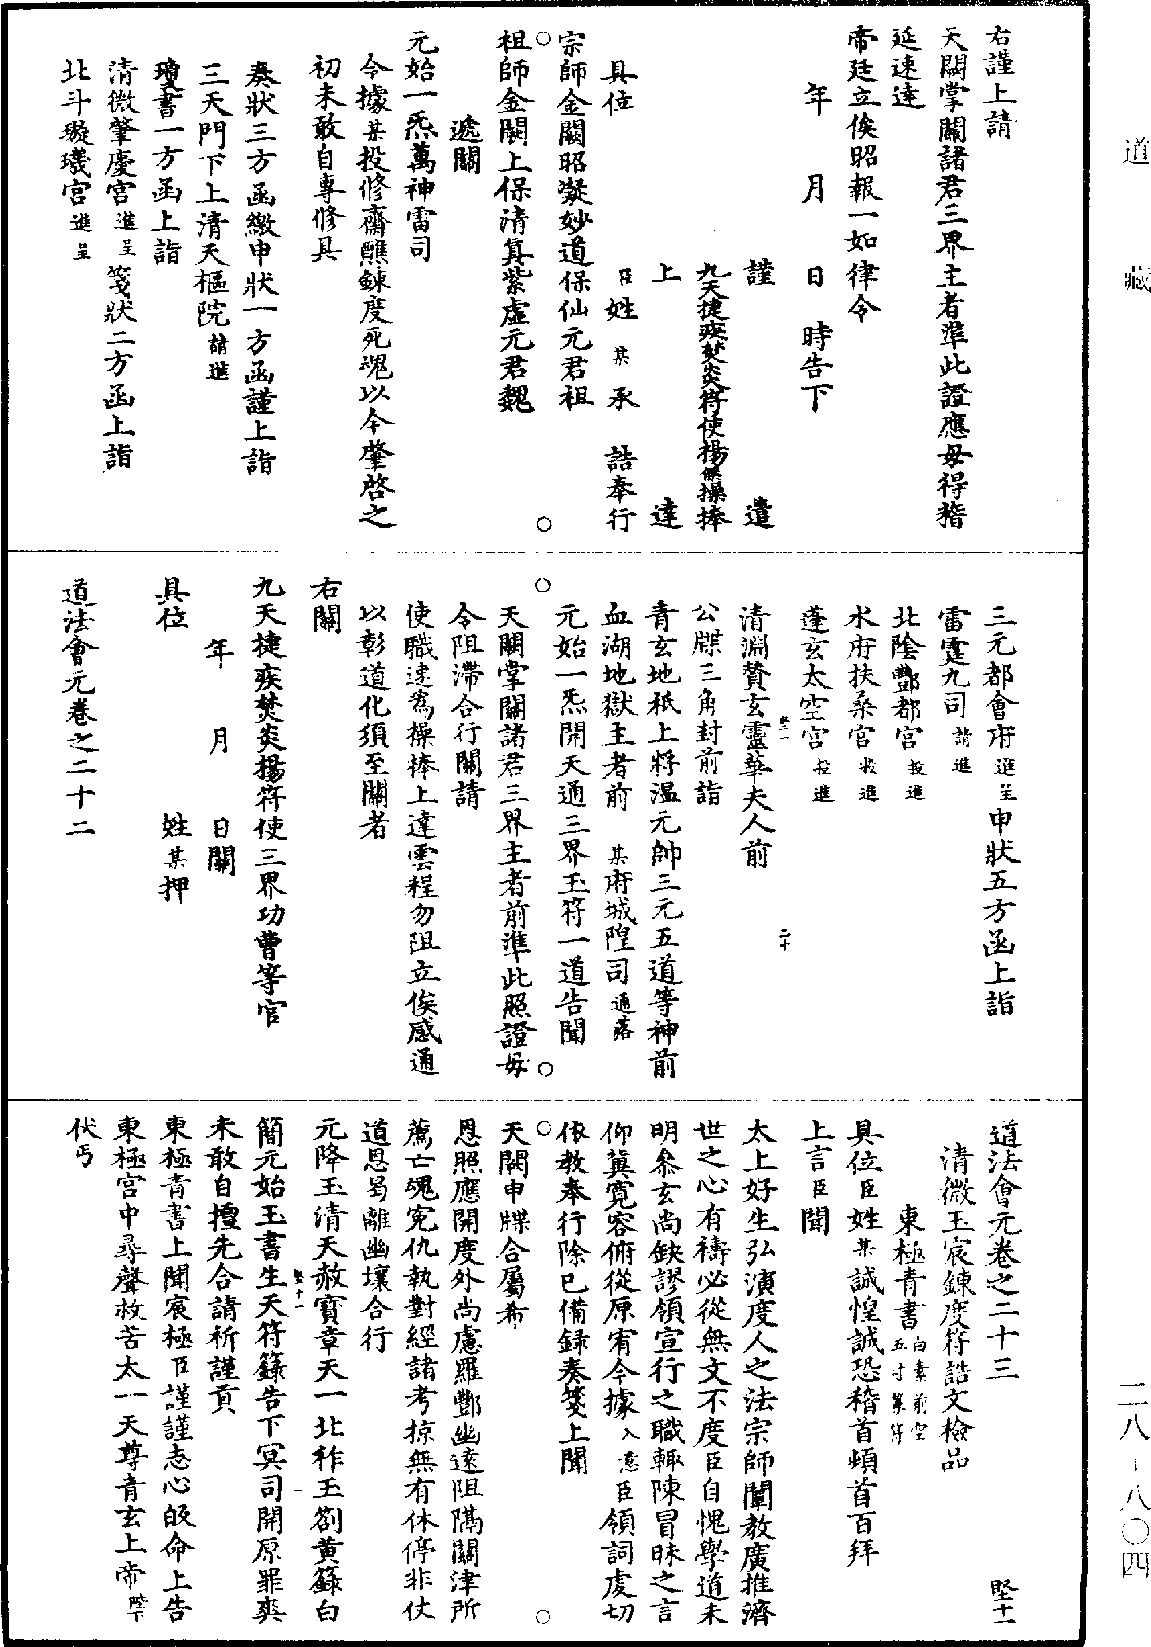 道藏
二八-八〇四
右謹上請
天關掌關諸君三界主者準此證應毋得稽
延速達
帝廷立俟昭報一如律令
年月日時告下
謹遣
九天捷疾焚炎符使揚傑操捧
上達
具位臣姓某承誥奉行
宗師金闕昭凝妙道保仙元君祖
祖師金闕上保清真紫虛元君魏
遞關
元始一炁萬神雷司
今據某投修齋醮鍊度死魂以今肇啓之
初未敢自專修具
奏狀三方函繳申狀一方函謹上詣
三天門下上清天樞院請進
瓊書一方函上詣
清微肇慶宮進呈箋狀二方函上詣
北斗璇璣宮進呈
三元都會府進呈申狀五方函上詣
雷霆九司請進
北陰酆都宮投進
水府扶桑宮投進
蓬玄太空宮投進
清淵贊玄靈華夫人前
公牒三角封前詣
青玄地祇上將溫元帥三元五道等神前
血湖地獄主者前某府城隍司通落
元始一炁開天通三界玉符一道告聞
天關掌關諸君三界主者前準此照證毋
令阻滯合行關請
使職速為操捧上達雲程勿阻立俟感通
以彰道化須至關者
右關
九天捷疾焚炎揚符使三界功曹等官
年月日關
具位姓某押
道法會元卷之二十二
道法會元卷之二十三
堅十一
清微玉宸鍊度符誥文檢品
東極青書白素前空五寸篆符
具位臣姓某誠惶誠恐稽首頓首百拜
上言臣聞
太上好生弘演度人之法宗師闡教廣推濟
世之心有禱必從無文不度臣自愧學道未
明參玄尚缺謬領宣行之職輒陳冒昧之言
仰冀寬容俯從原宥今據入意臣領詞虔切
依教奉行除已備錄奏箋上聞
天闕申牒合屬希
恩照應開度外尚慮羅酆幽遠阻隔關津所
薦亡魂冤仇執對經諸考掠無有休停非仗
道恩曷離幽壤合行
元降玉清天赦寶章天一北祚玉劄黃籙白
簡元始玉書生天符籙告下冥司開原罪爽
未敢自擅先合請祈謹貢
東極青書上聞宸極臣謹謹志心皈命上告
東極宮中尋聲救苦太一天尊青玄上帝陛下
伏丐